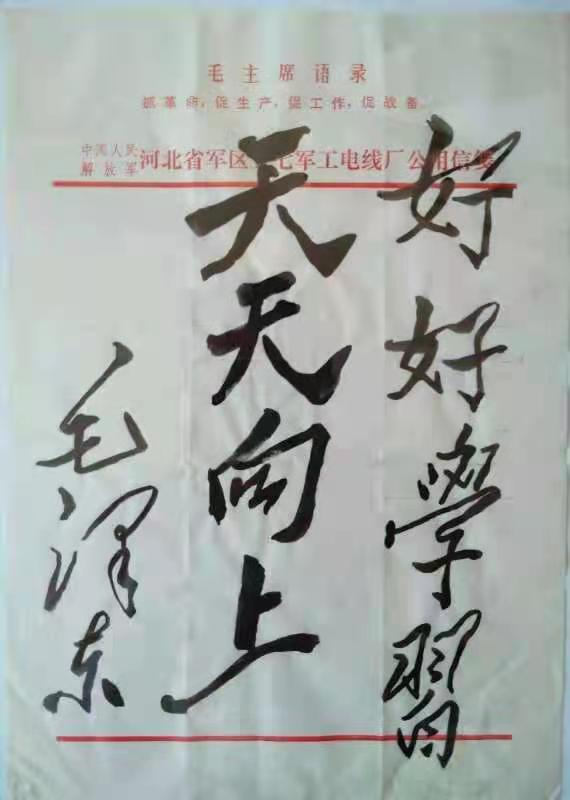 毛主席语录
抓革命,促生产,促工作,促战备。
中国人民
解放军
河北省军区 七军工电线厂公用信笺
好好學習
天天向上
毛泽东